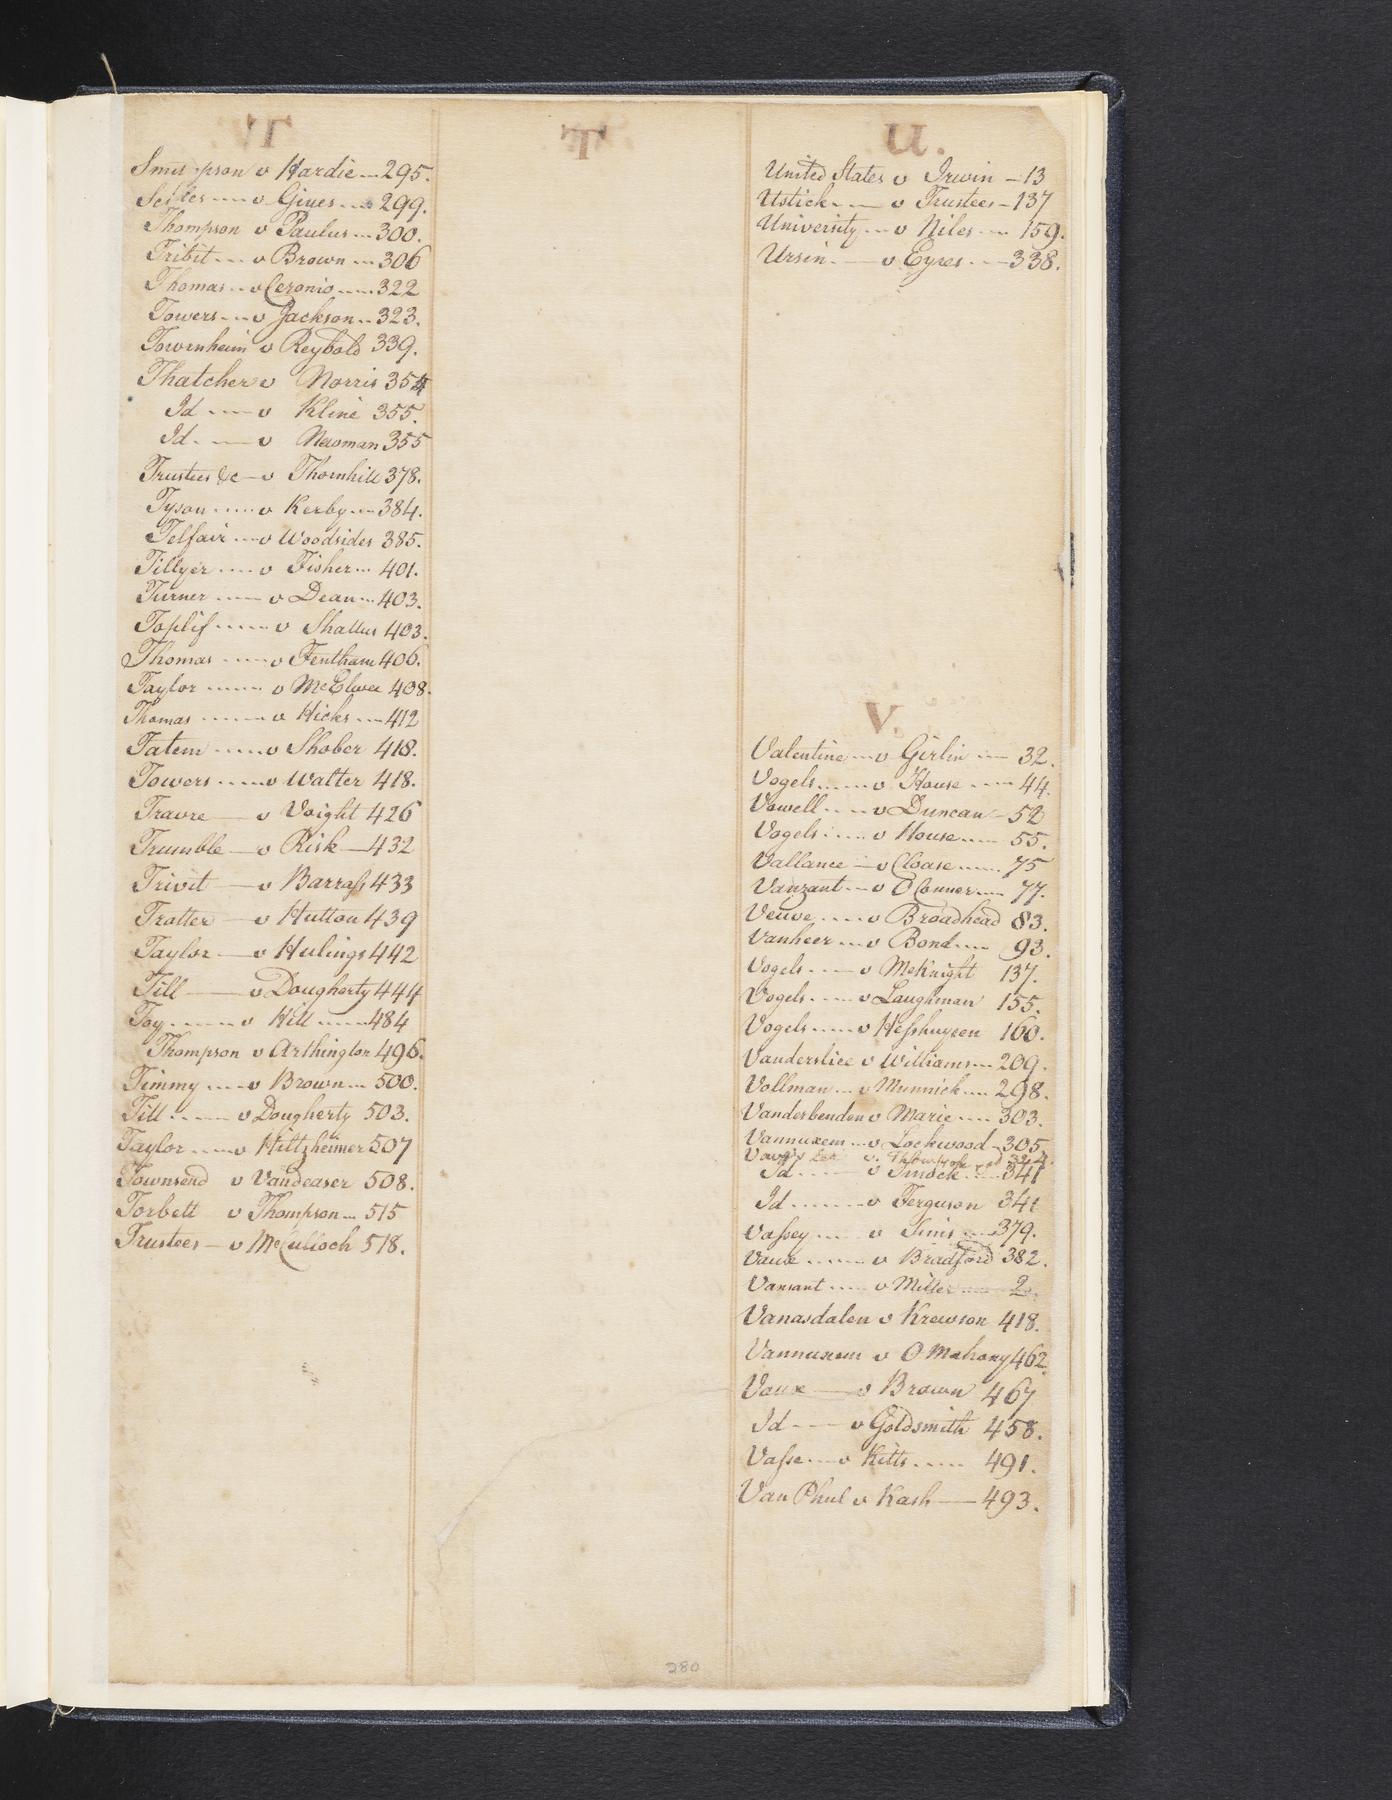 T
Simpson v Hardie 295.
v Gives 299.
Thompson v Paulus 300.
Tribit v Brown 306
Thomas v Ceronio 322
Towers v Jackson 323.
Townheim v Reybold 339.
Thatcher v Norris 354
Id v Kline 355.
Id v Newman 355
Trustees &c v Thornhill 378.
Tyson v Kerby 384.
Telfair v Woodsides 385.
Tillyer v Fisher 401.
Turner v Dean 403.
Toplif v Shallus 403.
Thomas v Fentham 406.
Taylor v McElwee 408.
Thomas v Hicks 412
Tatem v Shober 418.
Towers v Walter 418.
Travre v Voight 426
Trumble v Risk 432
Trivit v Barrass 433
Trotter v Hutton 439
Taylor v Hulings 442
Till v Dougherty 444
Toy v Hill 484
Thompson v Arthington 496.
Timmy v Brown 500.
Till v Dougherty 503.
Taylor v Hiltzheimer 507
Townsend v Vandeaser 508.
Torbett v Thompson 515
Trustees v McCulloch 518.
T
U.
United States v Irwin 13
Ustick v Trustees 137
University v Niles 159.
Ursin v Eyres 338.
V.
Valentine v Girlin 32.
Vogels v House 44.
Vowell v Duncan 52
Vogels v House 55.
Vallance v Cloase 75
Vanzant v O Conner 77.
Veuve v Broadhead 83.
Vanheer v Bond 93.
Vogels v McKnight 137.
Vogels v Laughman 155.
Vogels v Hesshuysen 160.
Vanderslice v Williams 209.
Vollman v Munnick 298.
Vanderbenden v Marie 303.
Vannuxem v Lockwood 305
v. 324.
Id v Smock 341
Id v Ferguson 341
Vassey v Sims 379.
Vaux v Bradford 382.
Vansant v Miller 2.
Vanasdalen v Krewson 418.
Vannuxem v O Mahony 462
Vaux v Brown 467
Id v Goldsmith 458.
Vasse v Kitts 491.
Van Phul v Kash 493.
280